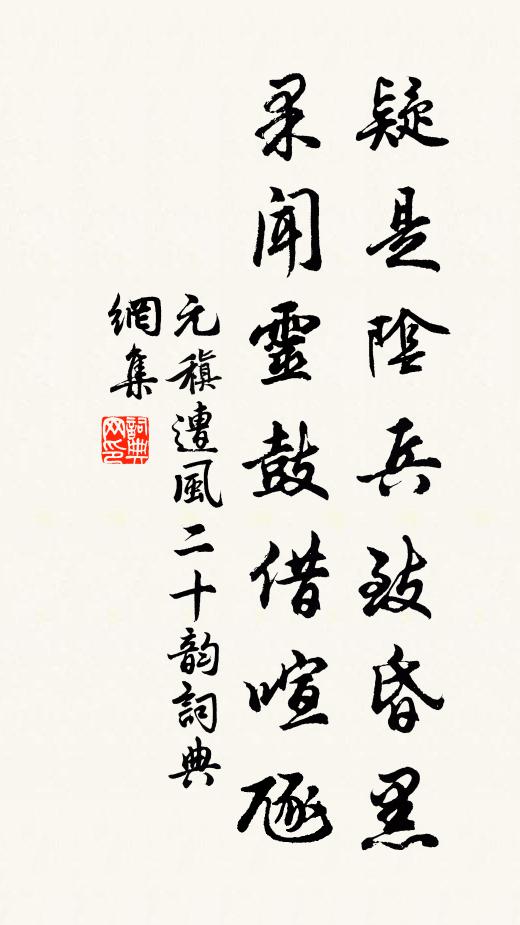 疑是陰兵致昏黑
果聞靈鼓借喧豗
元稹遭風二十韵詞典
網集
詞典
网印